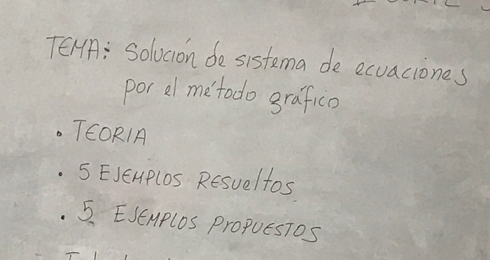 TEMA: Solución de sistema de ecuaciones
por el método gráfico
• TEORIA
• 5 EJEMPLOS RESUELTOS
• 5 EJEMPLOS PROPUESTOS